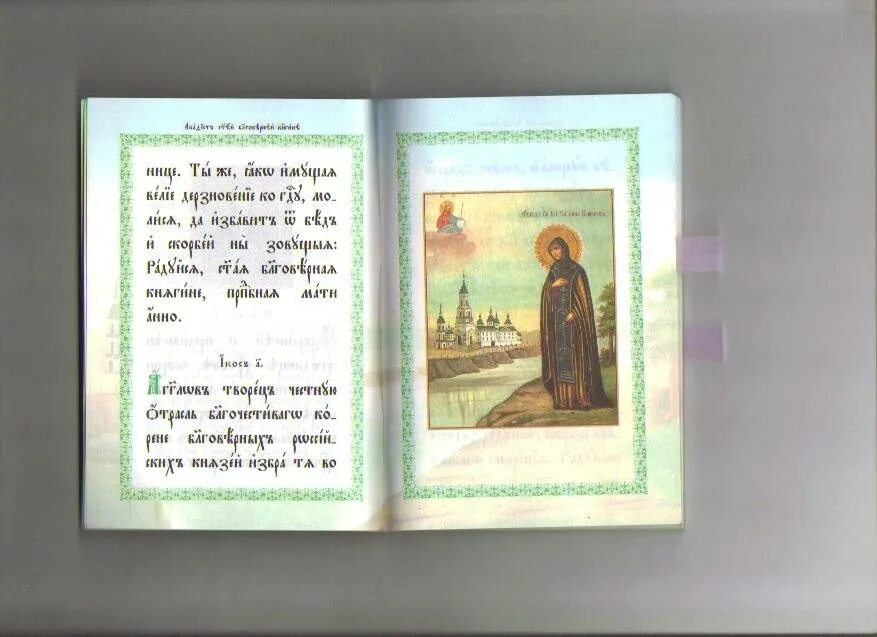 Акаѳїстъ ст҃ѣй бл҃говѣрнѣй кнѧгинѣ
нице. Ты̀ же, ꙗ҆́кѡ и҆мꙋ́щаѧ
ве́лїе дерзнове́нїе ко гд҇ꙋ, мо-
ли́сѧ, да и҆зба́витъ ѿ бѣ́дъ
и҆ скорбе́й ны̀ зовꙋ́щыѧ:
Ра́дꙋйсѧ, ст҃а́ѧ бл҃говѣ́рнаѧ
кнѧги́не, прпⷣбнаѧ ма́ти
а҆́нно.
І҆́косъ а҃.
А҆́гг҃лѡвъ творе́цъ честнꙋ́ю
ѻ҆́трасль бл҃гочести́вагѡ ко́-
рене бл҃говѣ́рныхъ рѡссі́й-
скихъ кнѧзе́й и҆збра̀ тѧ̀ во